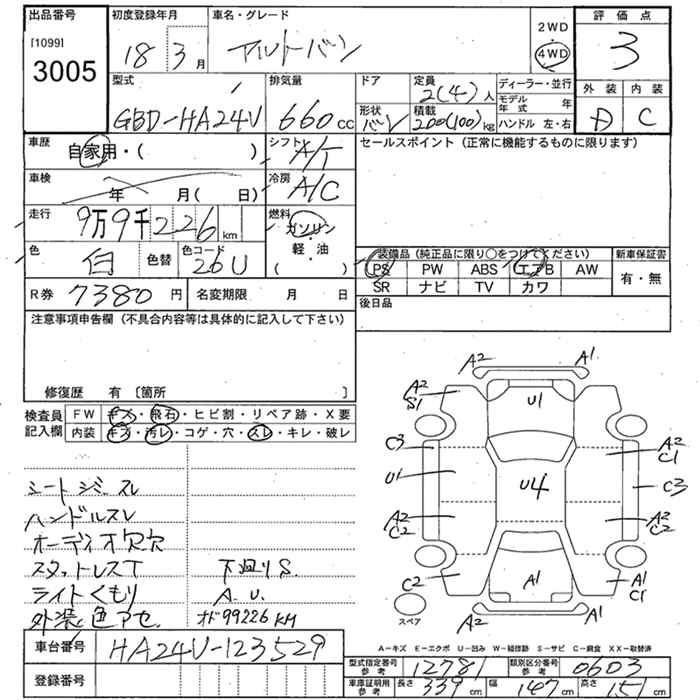 出品番号 初度登録年月 車名・グレード 2WD 評価点
[1099] 3005 18 3月 アルトバン 4WD 3
型式 排気量 ドア 定員 2(4)人 ディーラー・並行 外装 内装
GBD-HA24V 660cc 形状 バン 積載 200(100)kg モデル年式 年 ハンドル 左・右 D C
車歴 自家用・( ) シフト A/T セールスポイント(正常に機能するものに限ります)
車検 年 月( 日) 冷房 A/C
走行 9万9千226km 燃料 ガソリン・軽・油( )
色 白 色替 色コード 26U 装備品(純正品に限り○をつけてください) 新車保証書
PS PW ABS エアB AW 有・無
SR ナビ TV カワ
R券 7380円 名変期限 月 日 後日品
注意事項申告欄(不具合内容等は具体的に記入して下さい)
修復歴 有 [箇所 ]
検査員記入欄 FW キズ・飛石・ヒビ割・リペア跡・X要
内装 キズ・汚レ・コゲ・穴・スレ・キレ・破レ
A2 A1
A2 S1 U1
C3 A2 C1
U1 U4 C3
A2 C2 A2 C2
C2 A1 A1 C1
スペア A2 A1
シートシミ・スレ
ハンドルスレ
オーディオ欠欠
スタットレスT 下廻りS.
ライトくもり A.U.
外装色アセ オド99226KM
A-キズ E-エクボ U-凹み W-補修跡 S-サビ C-腐食 XX-取替済
車台番号 HA24V-123529
登録番号
型式指定番号 参考 12781 類別区分番号 参考 0603
車庫証明用 参考 長さ 339cm 幅 147cm 高さ 151cm